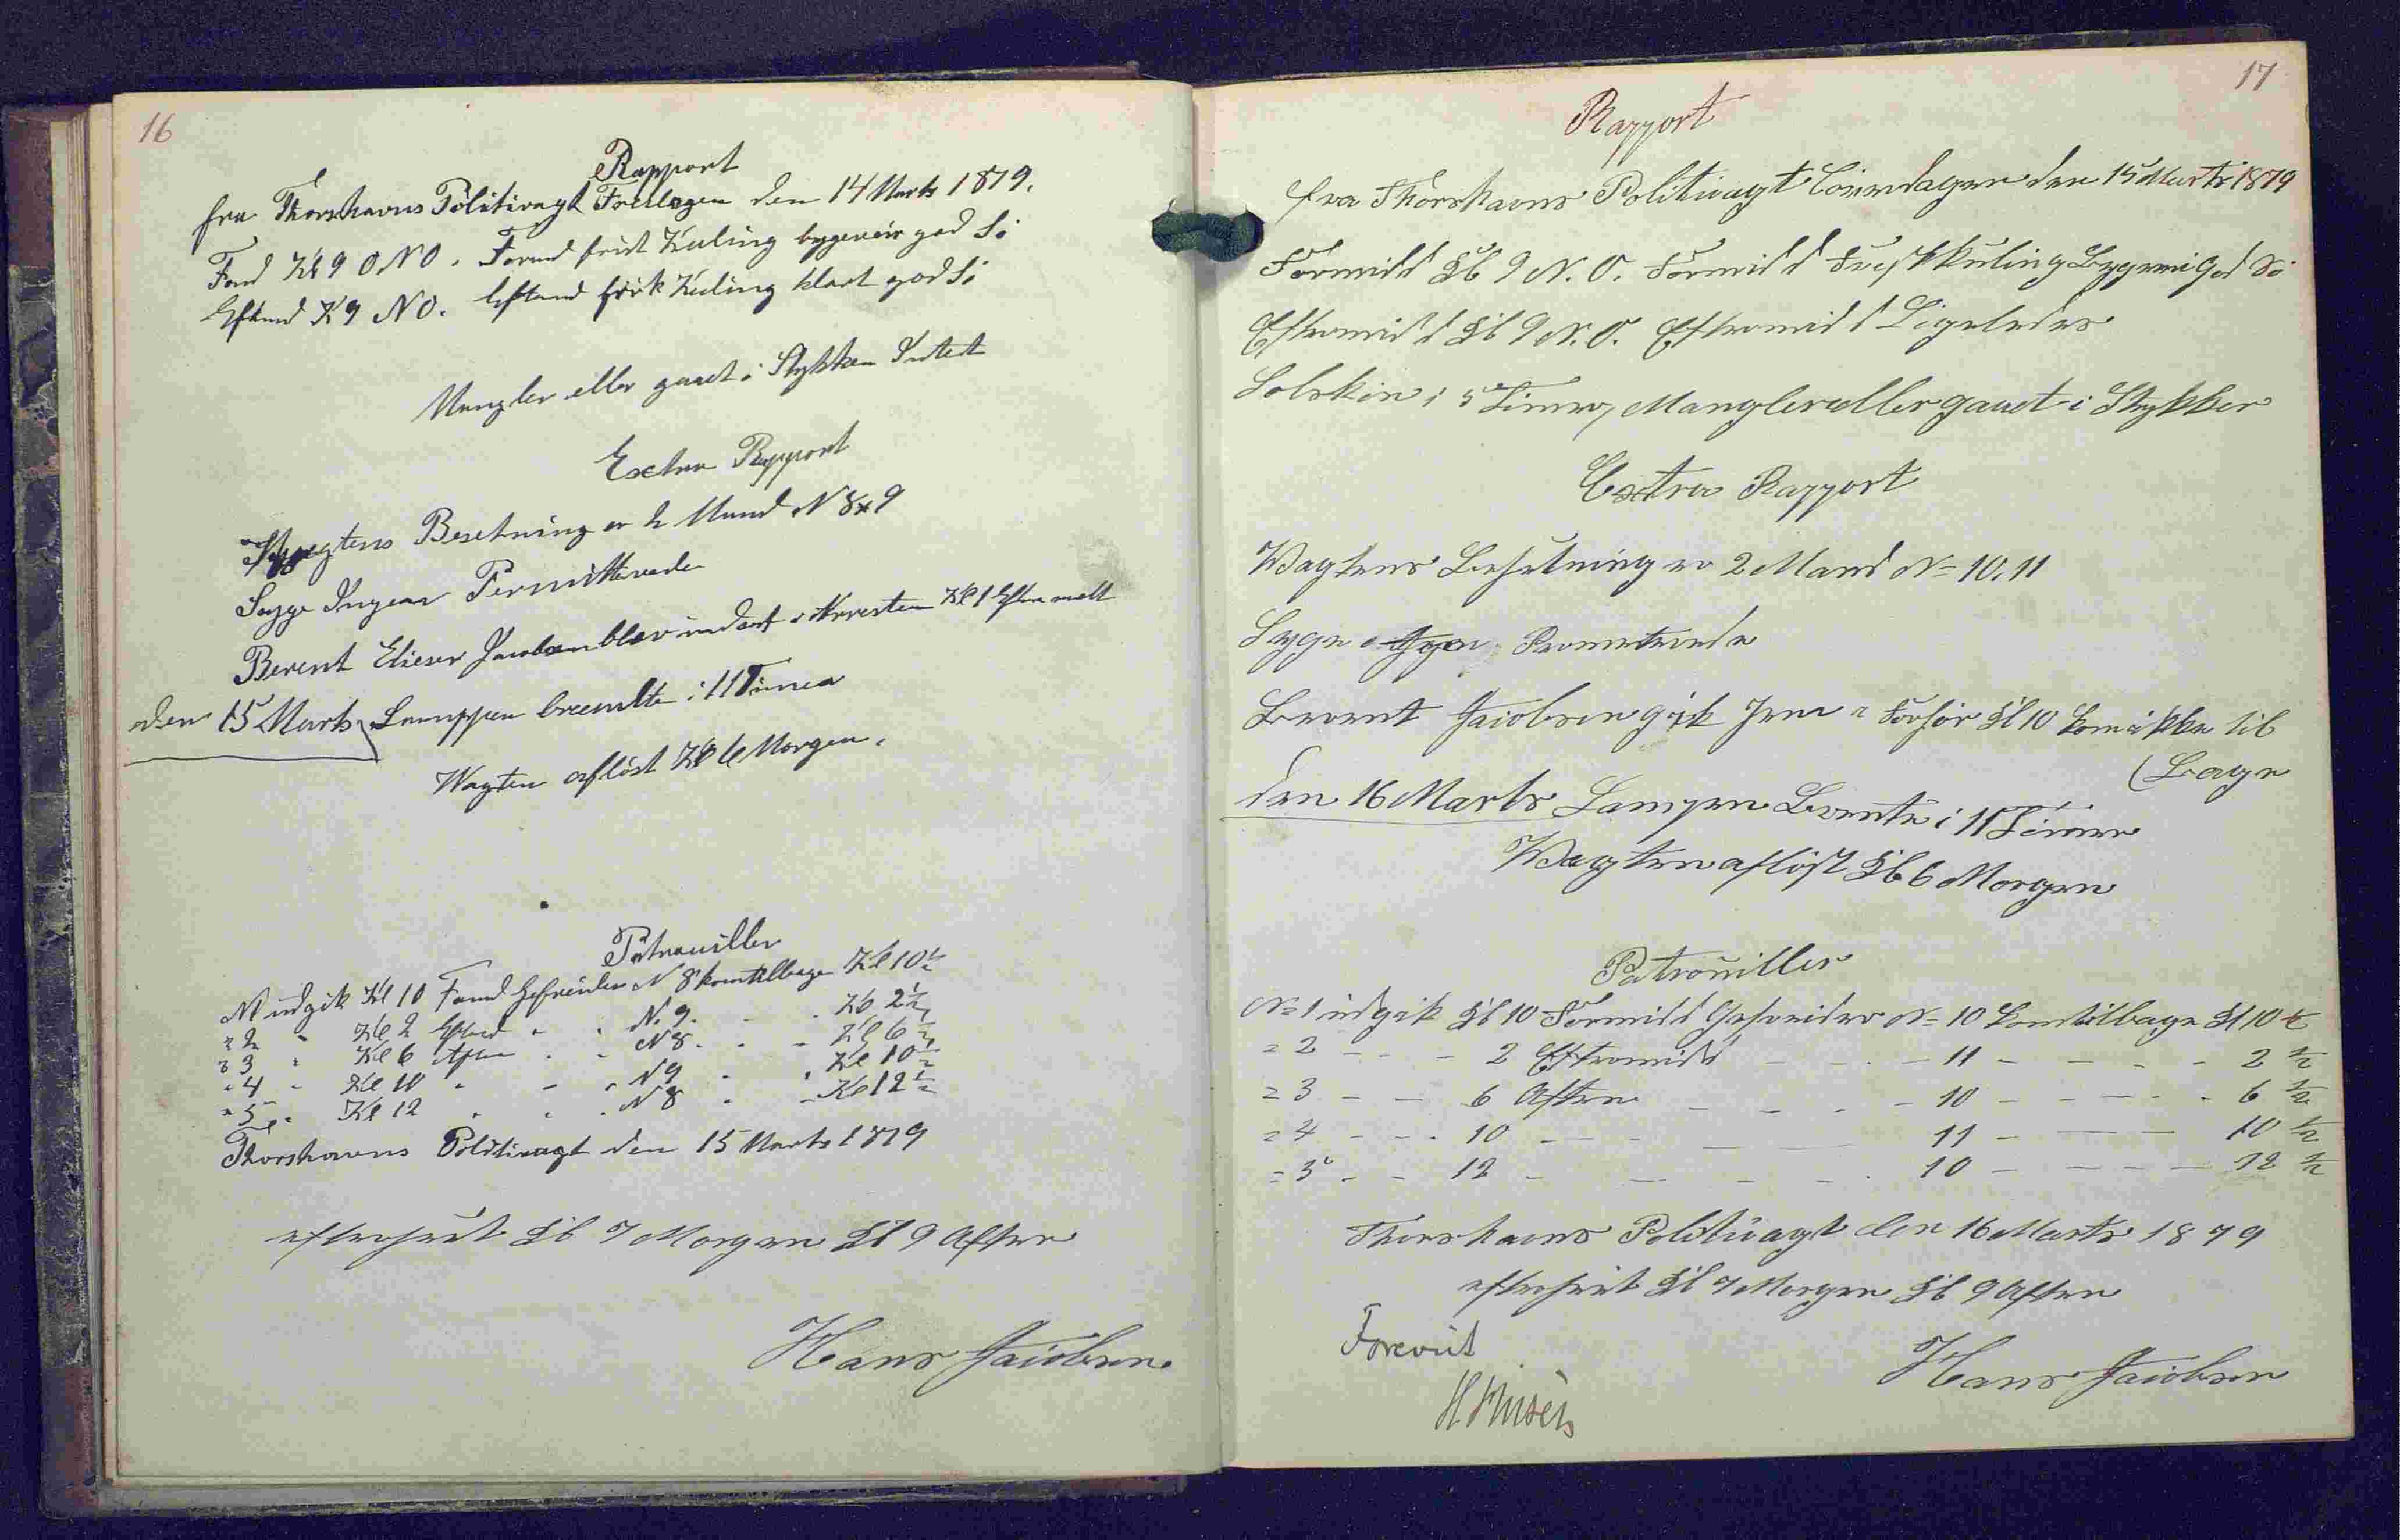 16
Rapport
fra Thorshavns Politivagt Fredagen den 14 Marts 1879.
Fmd Kl 9 ONO. Formd frisk Kuling bygeveir god Sö
Eftmd K 9 NO. Eftmd frisk Kuling klart god Sö
Mangler eller gaaet i Stykker Intet
Extra Rapport
Vagtens Besetning er 2 Mand N 8 & 9
Syge Ingen Permitterede
Berent Elieser Jacobsen blev indsat i Arresten Kl 1 Efter
den 15 Marts Lamppen brendte i 11 Timer
Wagten aflöst Kl 6 Morgen.
Patrouiller
N udgik Kl 10 Fmd Gefreider N 8 kom tilbage Kl 10 1/2
" 2 " Kl 2 Eftmd " " N. 9. " . Kl 2 1/2
" 3 " Kl 6 Aften . " N 8. " - Kl 6 1/2
" 4 - Kl 10 " - " N 9 " " Kl 10 1/2
" 5 " Kl 12 " " . N 8 " - Kl 12 1/2
Thorshavns Politivagt den 15 Marts 1879
efterseet Kl 7 Morgen Kl 9 Aften
Hans Jacobsen.
17
Rapport
fra Thorshavns Politivagt Löverdagen den 15 Marts 1879
Formidd Kl 9 N.O. Formidd Friskkuling Bygvei God Sö
Eftermidd Kl 9 N.O. Eftermidd Ligeledes
Solskin i 5 Timer, Mangler eller gaaet i Stykker
Extra Rapport
Wagtens Besetning er 2 Mand No 10. 11
Syge
Berent Jacobsen gik Forhör Kl 10 kom ikke til
(Bage
den 16 Marts Lampen Brente i 11 Timer
Wagten aflöst Kl 6 Morgen
Patrouiller
No 1 udgik Kl 10 Formidd Gefreider No 10 kom tilbage Kl 10 1/2
" 2 - - - 2 Eftermidd - - - 11 - - - - 2 1/2
" 3 - - 6 Aften - - - - 10 - - - - 6 1/2
" 4 - - - 10 - - - - - 11 - - - 10 1/2
" 5 - - 12 - - - - - 10 - - - - 12 1/2
Thorshavns Politivagt den 16 Marts 1879
efterseet Kl 7 Morgen Kl 9 Aften
Forevist
Hans Jacobsen